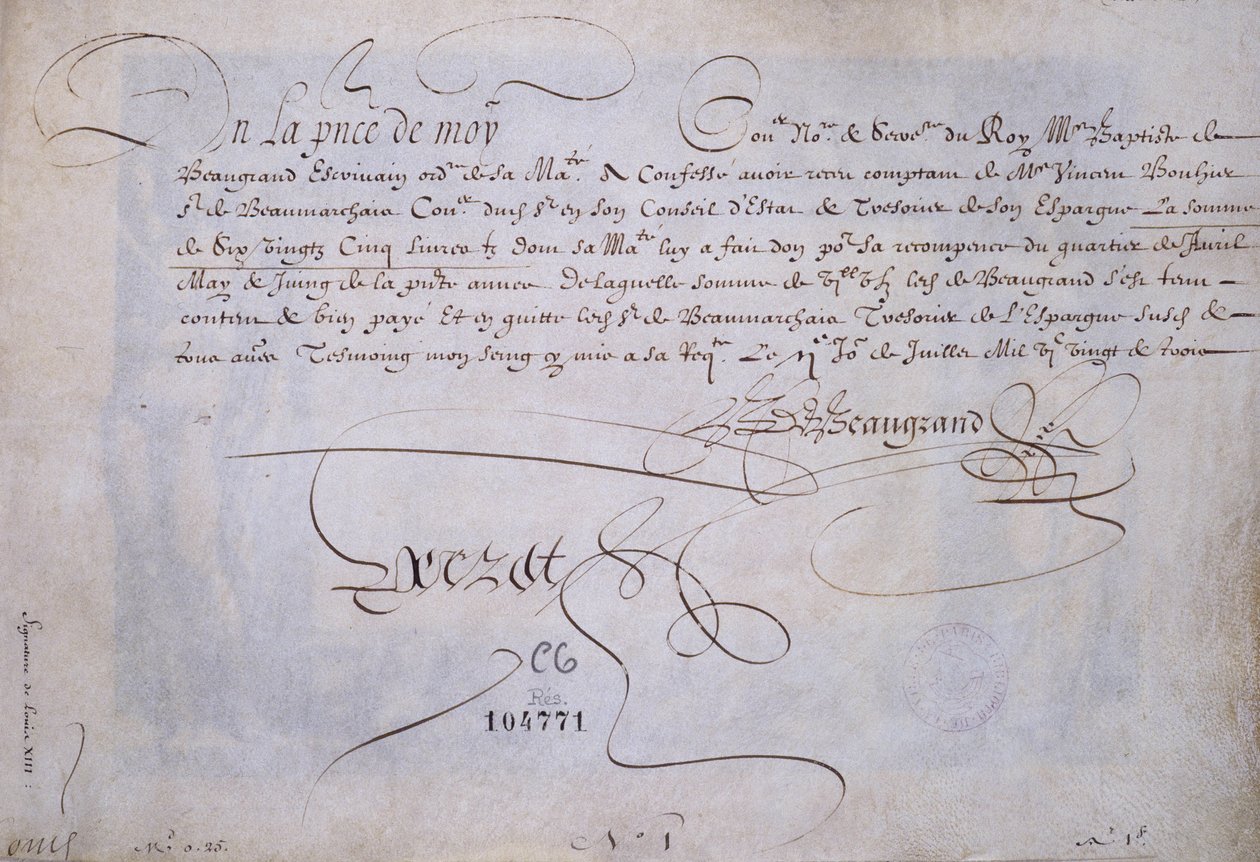 En la pnce de moy Couer Nore & Secrere du Roy Mre Baptiste de
Beaugrand Escrivain ordre de sa Maté. A Confessé avoir receu comptant de Mre Vincent Bouhier
Sr de Beaumarchais Couer dudt Sr en son Conseil d'Estat & Tresorier de son Espargne La somme
de Six vingtz Cinq livres tz dont sa Maté luy a fait don por sa recompence du quartier de Avril
May & Juing de la pnte annee De laquelle somme de ledt de Beaugrand s'est tenu
content & bien payé Et en quitte ledt Sr de Beaumarchais Tresorier de L'Espargne susdt &
tous autres Tesmoing mon seing cy mis a sa Reqte. Le Jor de Juillet Mil vic vingt & trois
Beaugrand
C6
Rés.
104771
Signature de Louis XIII :
No 1